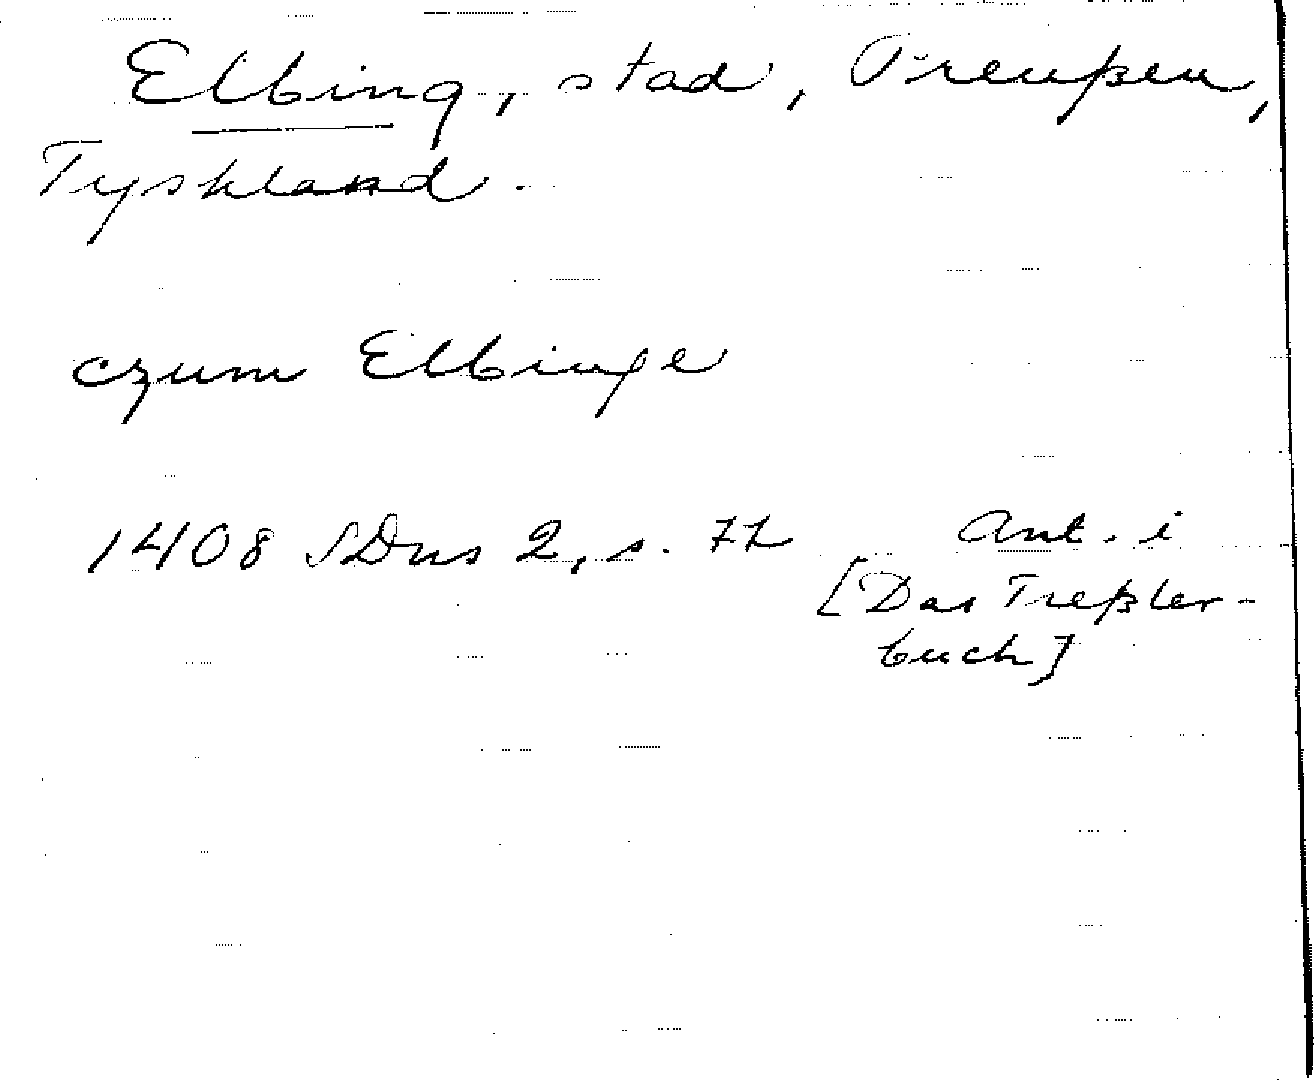 Elbing, stad, Preußen,
Tyskland.
czum Elbinge
1408 SDns 2, s. 72 Ant. i
[Das Treßler-
buch]